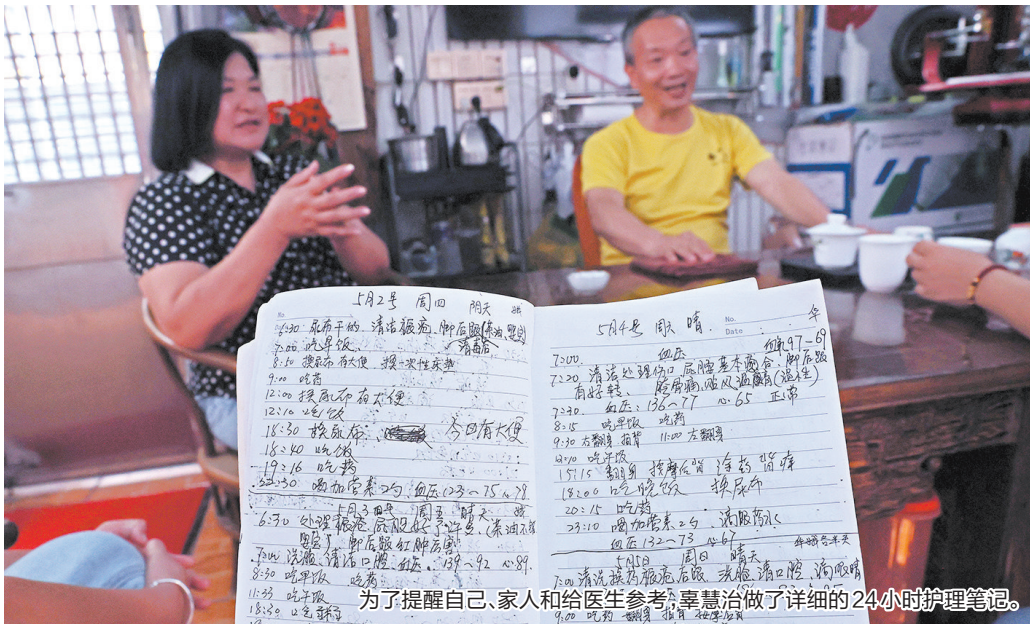 5月2号 周四 阴天
No
6:30 尿布干的、清洁褥疮、脚后跟
清毒后
7:00 吃早饭、
8:50 换尿布有大便 换一次性床垫
9:00 吃药
12:00 换尿布有大便
12:10 吃饭
18:30 换尿布、 今日有大便
18:40 吃饭
19:16 吃药
22:30 喝加营素2勺 血压123~75 心78
5月3号 周五 晴天
6:30 处理褥疮屁股好了许多、
脚后跟红肿厉害
7:00 洗脸、清洁口腔、血压: 139~92 心89.
8:30 吃早饭 吃药
11:33 吃午饭
18:30 吃
5月4号 周六 晴
No.
Date
7:00 血压 97-69
7:20 清洁处理伤口、屁股基本愈合、脚后跟
有好转、
7:30 血压: 136~77 心65 正常
8:15 吃早饭 吃药
9:30 左翻身 拍背 11:00 左翻身
12:10 吃午饭
15:15 翻身 按摩后背 涂药
18:00 吃晚饭 换尿布
20:15 吃药
23:10 喝加营素2勺、滴眼药水
血压132~73 心67
5月5日 周日 晴天
7:00 清洗换药褥疮后跟 洗脸清口腔、滴眼睛
9:00 吃药 翻身 拍背 按摩后背
为了提醒自己、家人和给医生参考,辜慧治做了详细的24小时护理笔记。